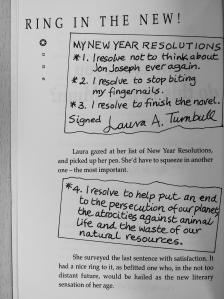 RING IN THE NEW!
MY NEW YEAR RESOLUTIONS
*1. I resolve not to think about
Jon Joseph ever again.
*2. I resolve to stop biting
my fingernails.
*3. I resolve to finish the novel.
Signed Laura A. Turnbull
Laura gazed at her list of New Year Resolutions,
and picked up her pen. She'd have to squeeze in another
one – the most important.
*4. I resolve to help put an end
to the persecution of our planet,
the atrocities against animal
life and the waste of our
natural resources.
She surveyed the last sentence with satisfaction. It
had a nice ring to it, as befitted one who, in the not too
distant future, would be hailed as the new literary
sensation of her age.